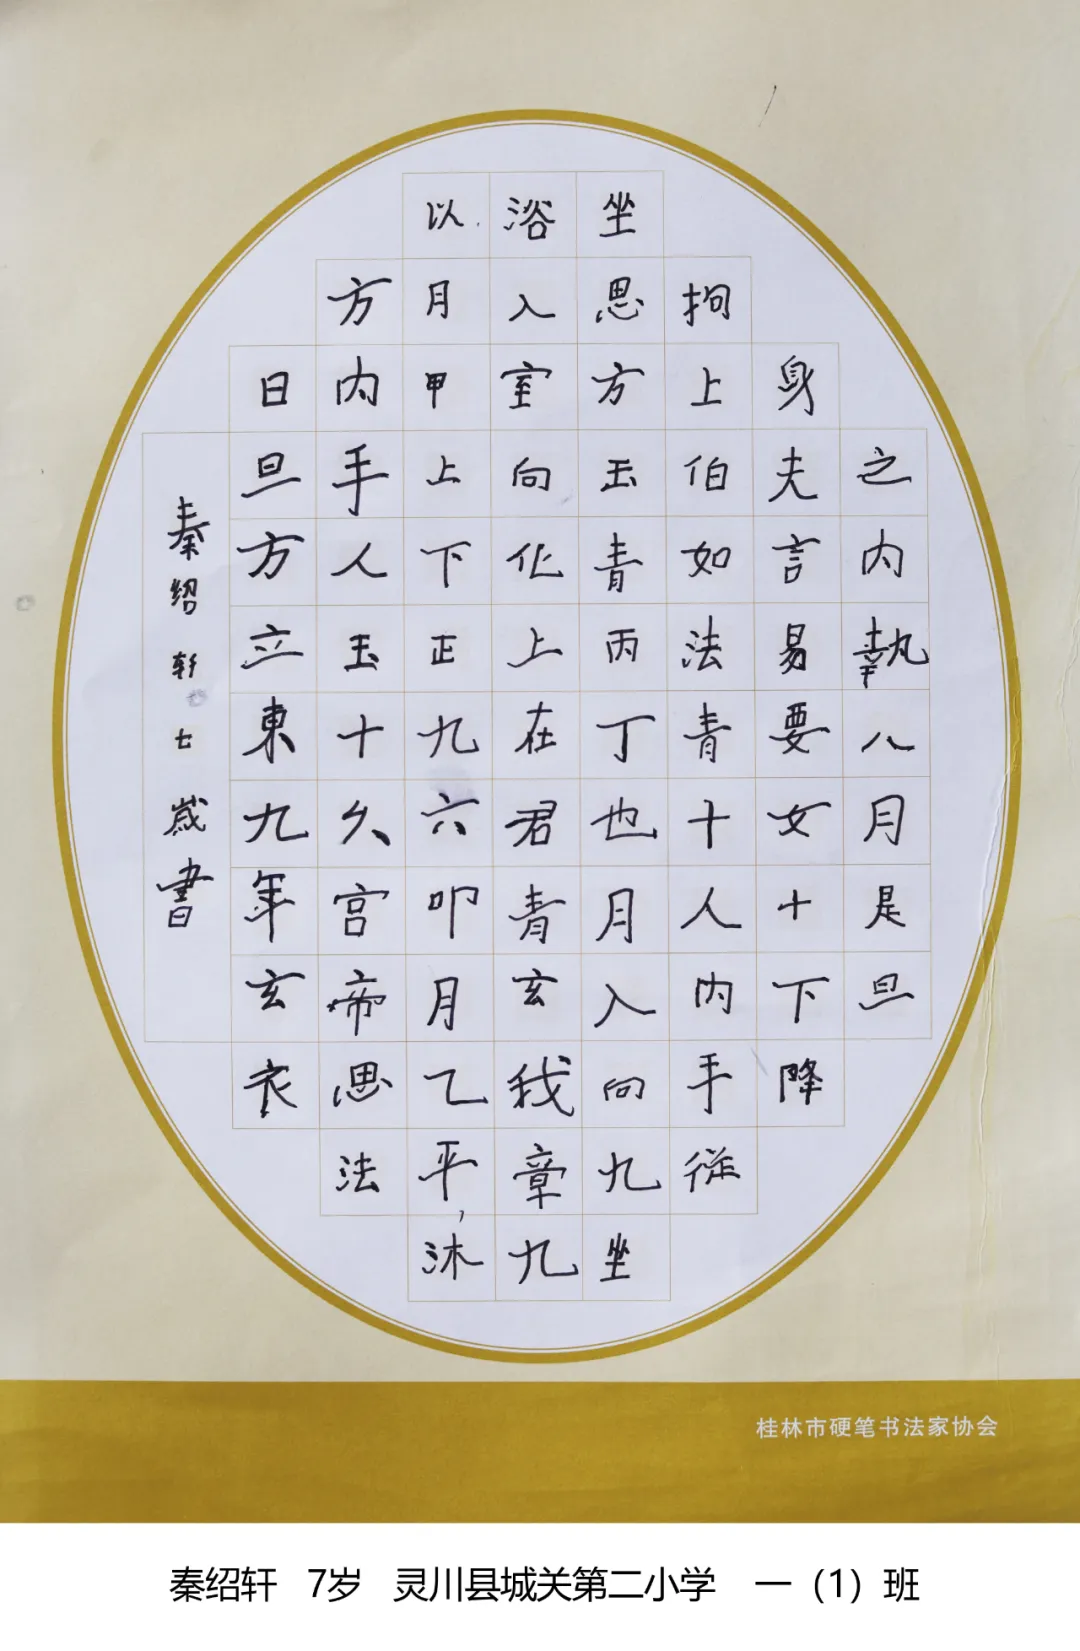 之内執八月是旦
身夫言易要女十下降
拘上伯如法青十人内手從
坐思方玉青丙丁也月入向九坐
浴入室向化上在君青玄我章九
以月甲上下正九六叩月乙平,沐
方内手人玉十久宫帝思法
日旦方立東九年玄衣
秦绍轩七歲書
桂林市硬笔书法家协会
秦绍轩 7岁 灵川县城关第二小学 一（1）班